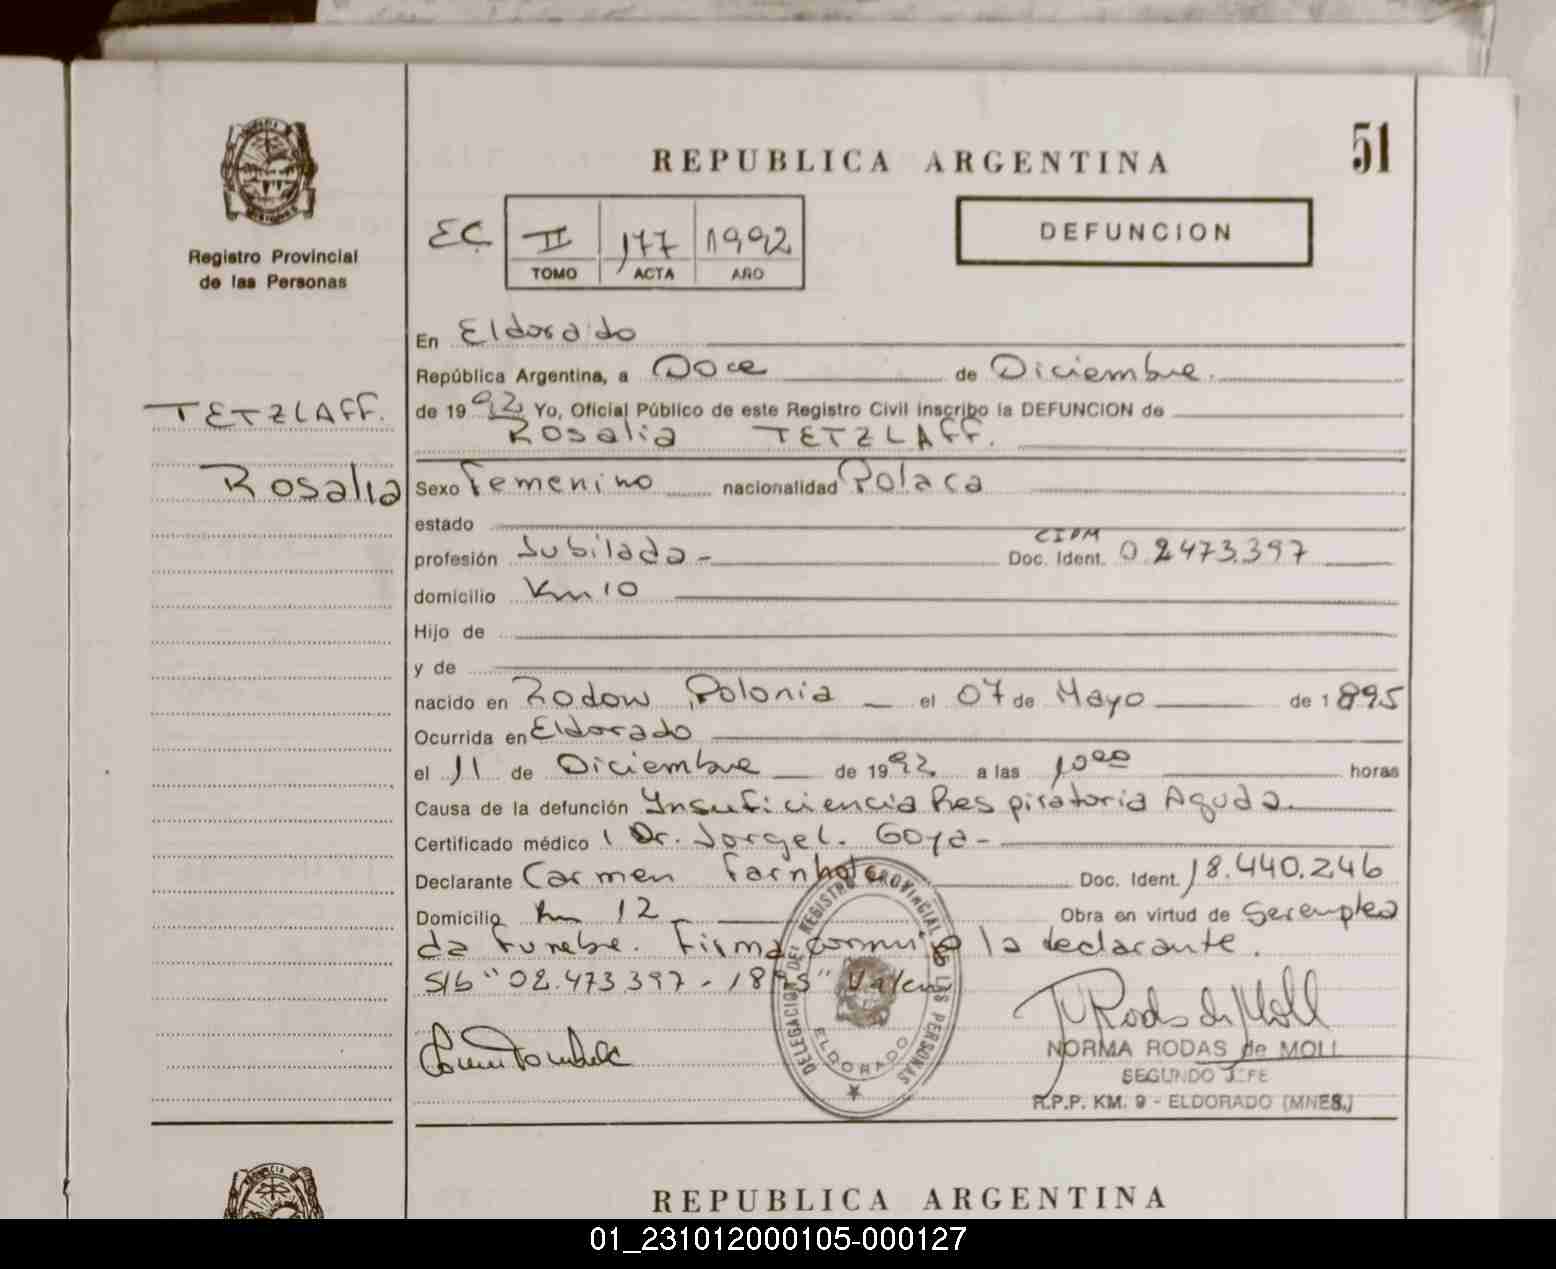 51
REPUBLICA ARGENTINA
Registro Provincial
de las Personas
EC II 177 1992
TOMO ACTA AÑO
DEFUNCION
En Eldorado
República Argentina, a Doce de Diciembre.
TETZLAFF.
de 19 92 Yo, Oficial Público de este Registro Civil inscribo la DEFUNCION de
Rosalia TETZLAFF.
Rosalia
Sexo Femenino nacionalidad Polaca
estado
CIPM
profesión Jubilada- Doc. Ident. 02473.397
domicilio Km 10
Hijo de
y de
nacido en Rodow Polonia el 07 de Mayo de 1895
Ocurrida en Eldorado
el 11 de Diciembre de 1992 a las 10 00 horas
Causa de la defunción Insuficiencia Respiratoria Aguda.
Certificado médico Dr. Jorge L. Goya-
Declarante Carmen Farnhola Doc. Ident. 18.440.246
Domicilio Km 12 Obra en virtud de Ser emplea
da Funebre. Firma conmigo la declarante.
S/b "02.473.397 - 1895" Valen
DELEGACION DEL REGISTRO PROVINCIAL DE LAS PERSONAS
ELDORADO
NORMA RODAS de MOLL
SEGUNDO JEFE
R.P.P. KM. 9 - ELDORADO (MNES.)
REPUBLICA ARGENTINA
01_231012000105-000127